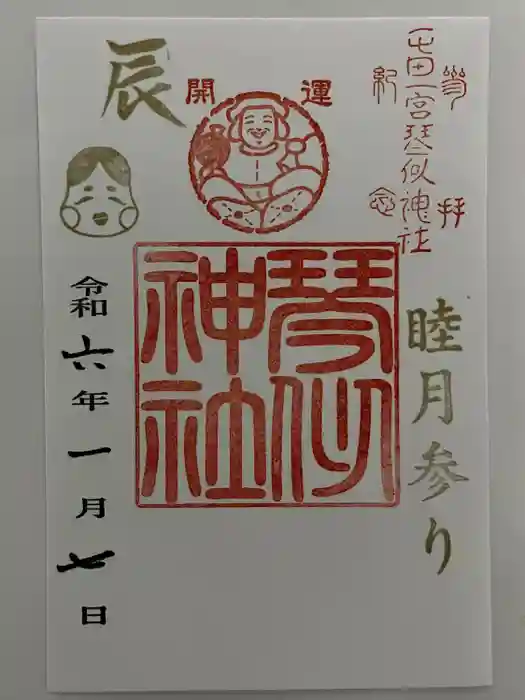 參拝
屯田一宮琴似神社
紀念
睦月参り
開運
琴似
神社
辰
令和六年一月七日